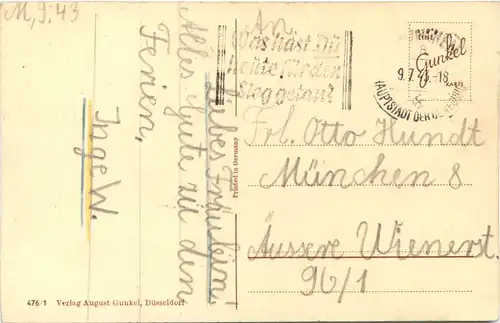 M, 9.43
Liebes Fräulein!
Alles Gute zu den
Ferien,
Inge W.
476/1 Verlag August Gunkel, Düsseldorf
Printed in Germany
An.
Was hast Du
heute für den
Sieg getan?
Gunkel
KARTE
9.7.43-18
HAUPTSTADT DER BEWEGUNG
Frl. Otto Hundt
München 8
Äussere Wienerst.
96/1